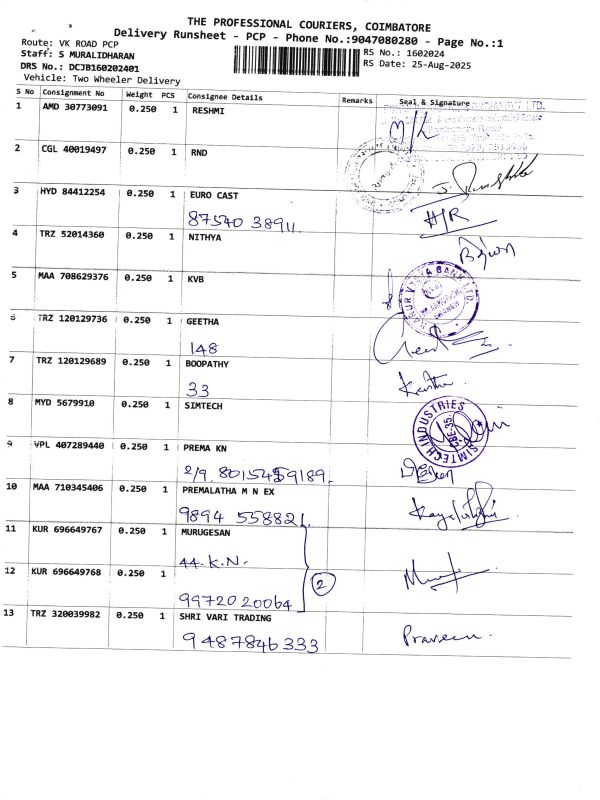 THE PROFESSIONAL COURIERS, COIMBATORE
Delivery Runsheet - PCP - Phone No.:9047080280 - Page No.:1
Route: VK ROAD PCP
RS No.: 1602024
Staff: S MURALIDHARAN
RS Date: 25-Aug-2025
DRS No.: DCJB160202401
Vehicle: Two Wheeler Delivery
S No Consignment No Weight PCS Consignee Details Remarks Seal & Signature
1 AMD 30773091 0.250 1 RESHMI
2 CGL 40019497 0.250 1 RND
3 HYD 84412254 0.250 1 EURO CAST
87540 38911 H/R
4 TRZ 52014360 0.250 1 NITHYA
5 MAA 708629376 0.250 1 KVB
KARUR VYSYA BANK LTD.
6 TRZ 120129736 0.250 1 GEETHA
148
7 TRZ 120129689 0.250 1 BOOPATHY
33
8 MYD 5679910 0.250 1 SIMTECH
SIMTECH INDUSTRIES
CBE-35.
9 VPL 407289440 0.250 1 PREMA KN
2/9, 8015459189.
10 MAA 710345406 0.250 1 PREMALATHA M N EX
9894 558821
11 KUR 696649767 0.250 1 MURUGESAN
44.K.N.
12 KUR 696649768 0.250 1
2
9972020064
13 TRZ 320039982 0.250 1 SHRI VARI TRADING
9487846333 Praveen.